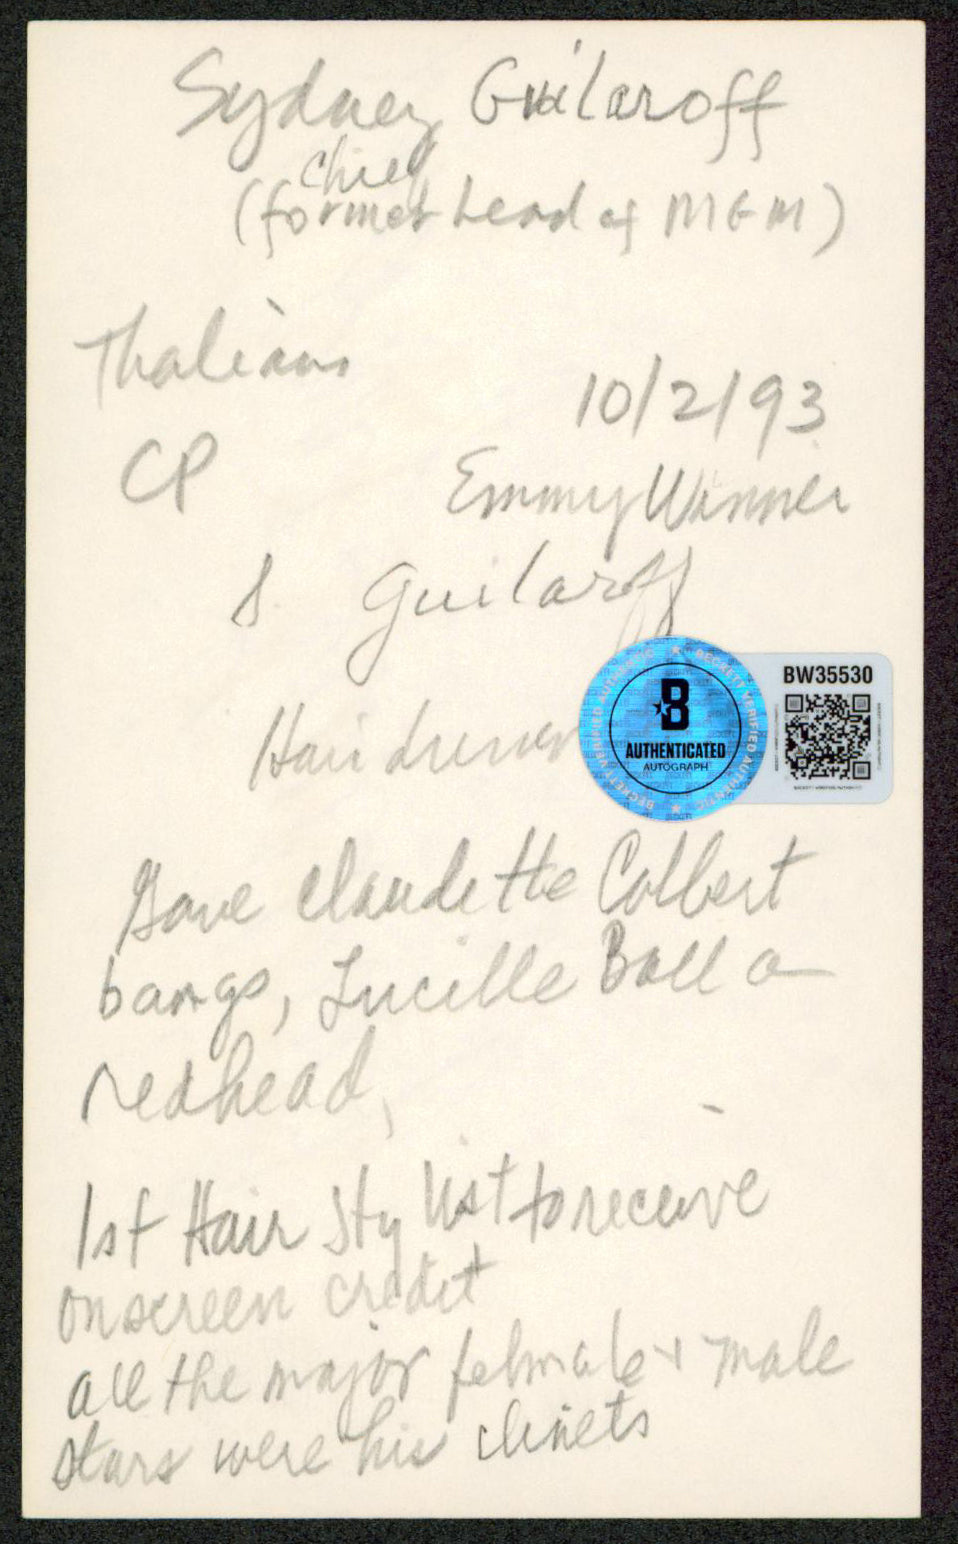 Sydney Guilaroff
chief
(former head of MGM)
Thalians
10/2/93
CP
Emmy Winner
S Guilaroff
BW35530
B
AUTHENTICATED
AUTOGRAPH
BECKETT VERIFIED AUTHENTIC
Hairdresser
Gave Claudette Colbert
bangs, Lucille Ball a
redhead,
1st Hair Stylist to receive
onscreen credit
all the major felmale + male
stars were his clinets